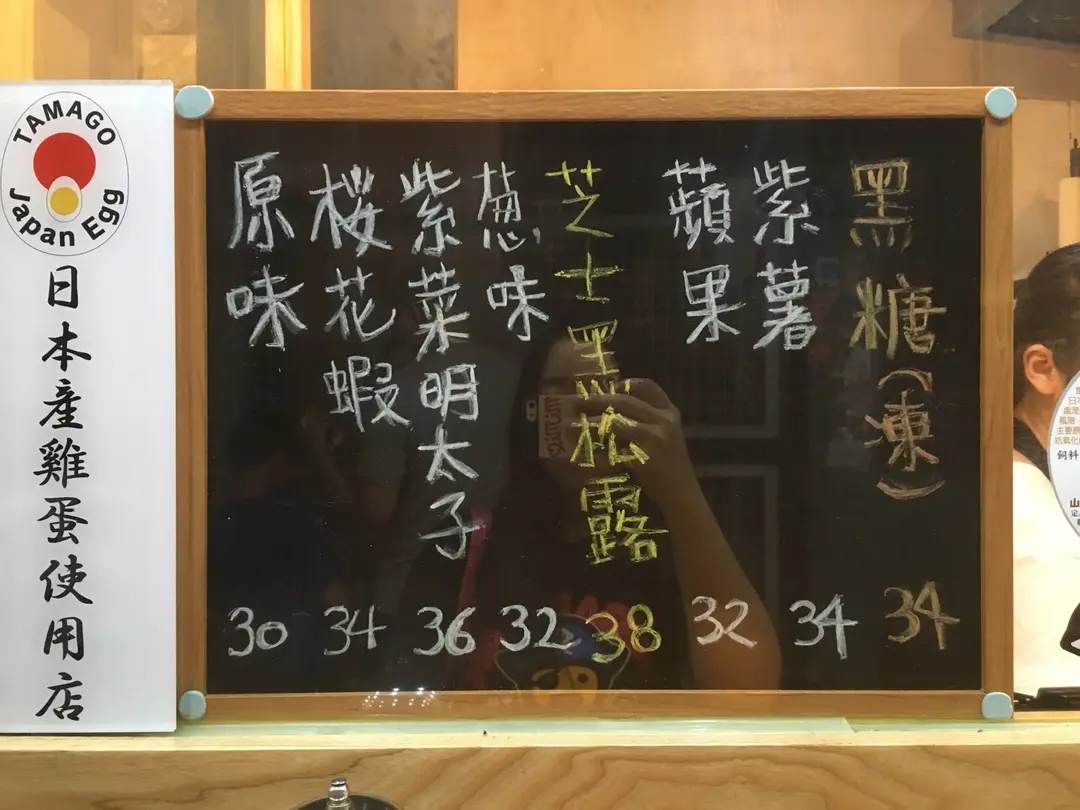 TAMAGO
Japan Egg
日本產雞蛋使用店
原味 30
桜花蝦 34
紫菜明太子 36
葱味 32
芝士黑松露 38
蘋果 32
紫薯 34
黑糖(凍) 34
飼料